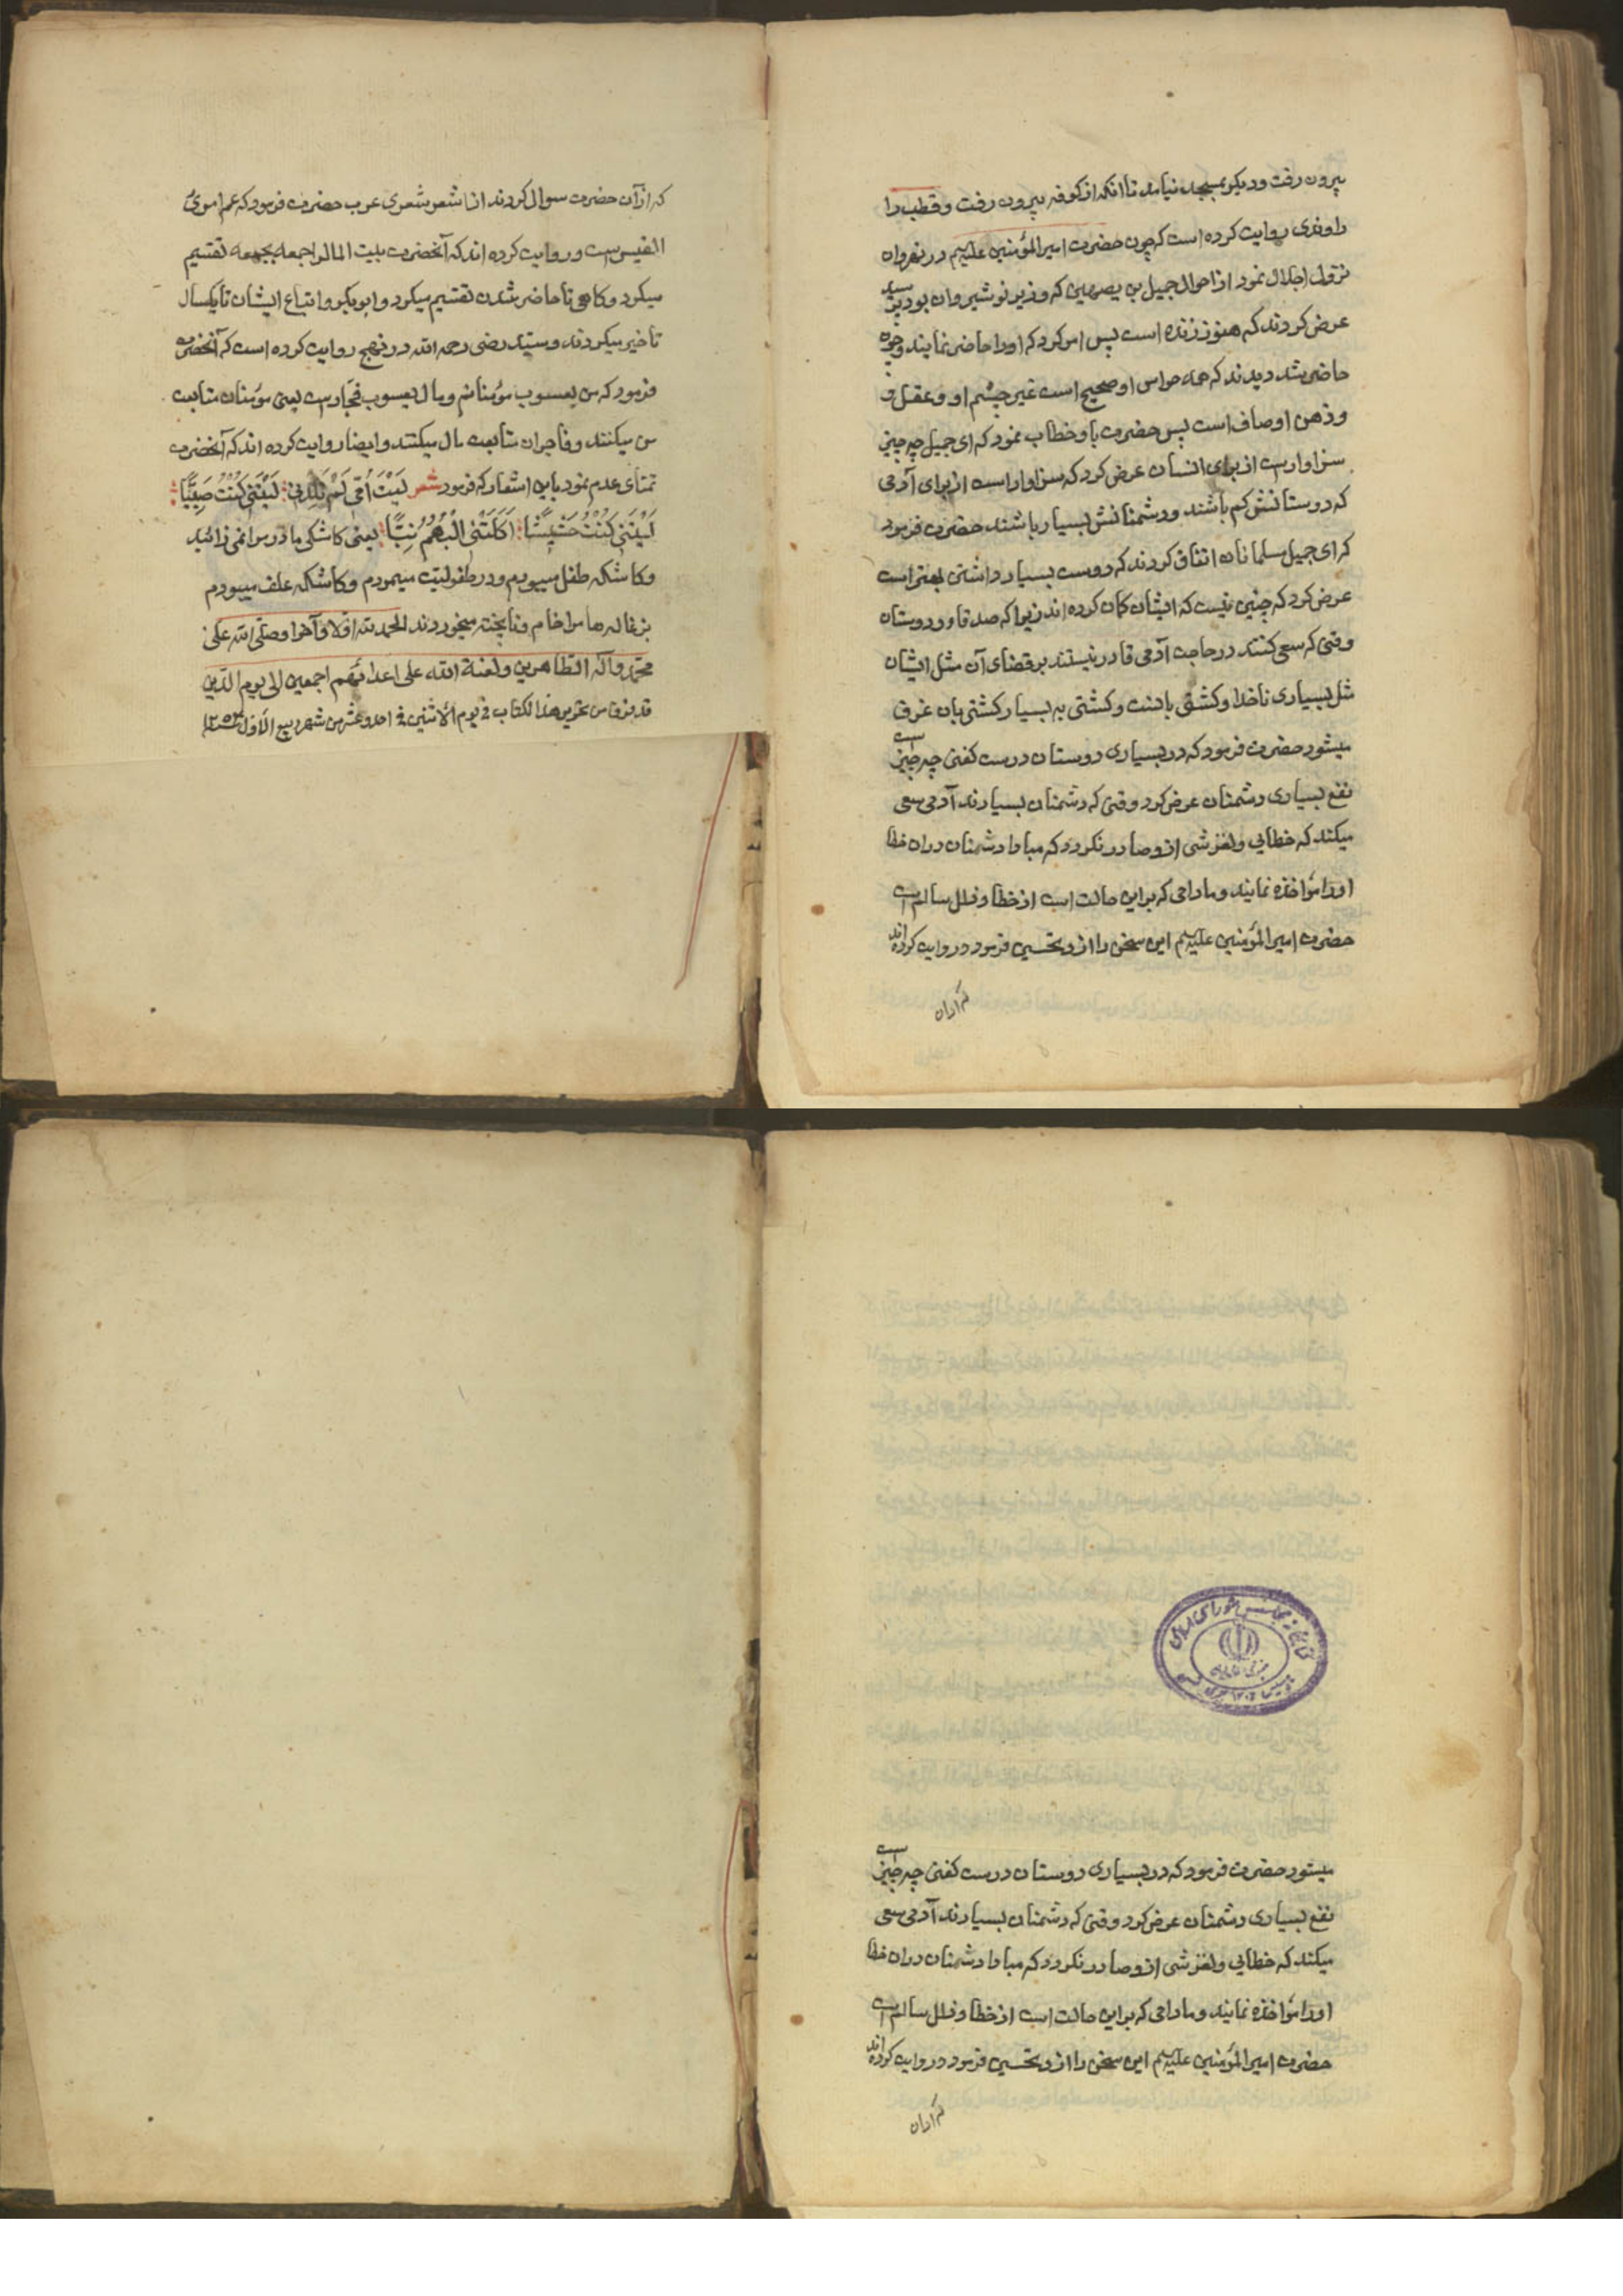 بیرون رفت و دیگر بمسجد نیامد تا انکه از کوفه بیرون رفت و قطب را
راوندی روایت کرده است که چون حضرت امیر المؤمنین علیه‌السلم در نهروان
نزول اجلال نمود از احوال جمیل بن بصیهری که وزیر نوشیروان بود پرسید
عرض کردند که هنوز زنده است پس امر کرد که اورا حاضر نمایند و چون
حاضر شد دیدند که همه حواس او صحیح است غیر چشم او و عقل و
و ذهن او صاف است پس حضرت باو خطاب نمود که ای جمیل چه چیز
سزاوار است از برای انسان عرض کرد که سزاوار است از برای آدمی
که دوستانش کم باشند و دشمنانش بسیار باشند حضرت فرمود
که ای جمیل مسلمانان اتفاق کردند که دوست بسیار داشتن بهتر است
عرض کرد که چنین نیست که ایشان کمان کرده اند زیرا که صدقا و دوستان
وقتی که سعی کنند در حاجت آدمی قادر نیستند بر قضای آن مثل ایشان
مثل بسیاری ناخدا و کشتی بانست و کشتی به بسیار کشتی بان غرق
میشود حضرت فرمود که در بسیاری دوستان درست کفتی چه چیز است
نفع بسیاری دشمنان عرض کرد وقتی که دشمنان بسیارند آدمی سعی
میکند که خطایی و لغزشی ازو صادر نکردد که مبادا دشمنان دران خطا
اورا مؤاخذه نمایند و مادامی که براین حالت است از خطا و زلل سالم است
حضرت امیر المؤمنین علیه‌السلم این سخن را ازو تحسین فرمود و روایت کرده اند
که ازان
که از آن حضرت سوال کردند از اشعر شعری عرب حضرت فرمود که عم امروئ
القیس است و روایت کرده اند که آنحضرت بیت المال را جمعه بجمعه تقسیم
میکرد و کاهی تا حاضر شدن تقسیم میکرد و ابوبکر و اتباع ایشان تا یکسال
تاخیر میکردند و سید رضی رحمه الله در نهج روایت کرده است که آنحضرت
فرمود که من یعسوب مؤمنانم و مال یعسوب فجار است یعنی مؤمنان متابعت
من میکنند و فاجران متابعت مال میکنند و ایضا روایت کرده اند که آنحضرت
تمنای عدم نمود باین اشعار که فرمود شعر لَیْتَ اُمّی لَمْ تَلِدْنی لَیْتَنی کُنْتُ صَبِیًّا
لَیْتَنی کُنْتُ حَشیشًا اَکَلَتْنی الْبُهْمُ نِیًّا یعنی کاشکی مادر مرا نمی زائید
وکاشکه طفل میبودم و در طفولیت میمردم وکاشکه علف میبودم
بزغاله ها مرا خام و ناپخته میخوردند الحمد لله اولا و آخرا و صلی الله علی
محمد و آله الطاهرین و لعنة الله علی اعدائهم اجمعین الی یوم الدین
قد فرغ من تحریر هذا الکتاب فی یوم الاثنین فی احد و عشر من شهر ربیع الاول ۱۲۵۳
کتابخانه مجلس شورای اسلامی
جمهوری اسلامی ایران
میشود حضرت فرمود که در بسیاری دوستان درست کفتی چه چیز است
نفع بسیاری دشمنان عرض کرد وقتی که دشمنان بسیارند آدمی سعی
میکند که خطایی و لغزشی ازو صادر نکردد که مبادا دشمنان دران خطا
اورا مؤاخذه نمایند و مادامی که براین حالت است از خطا و زلل سالم است
حضرت امیر المؤمنین علیه‌السلم این سخن را ازو تحسین فرمود و روایت کرده اند
که ازان